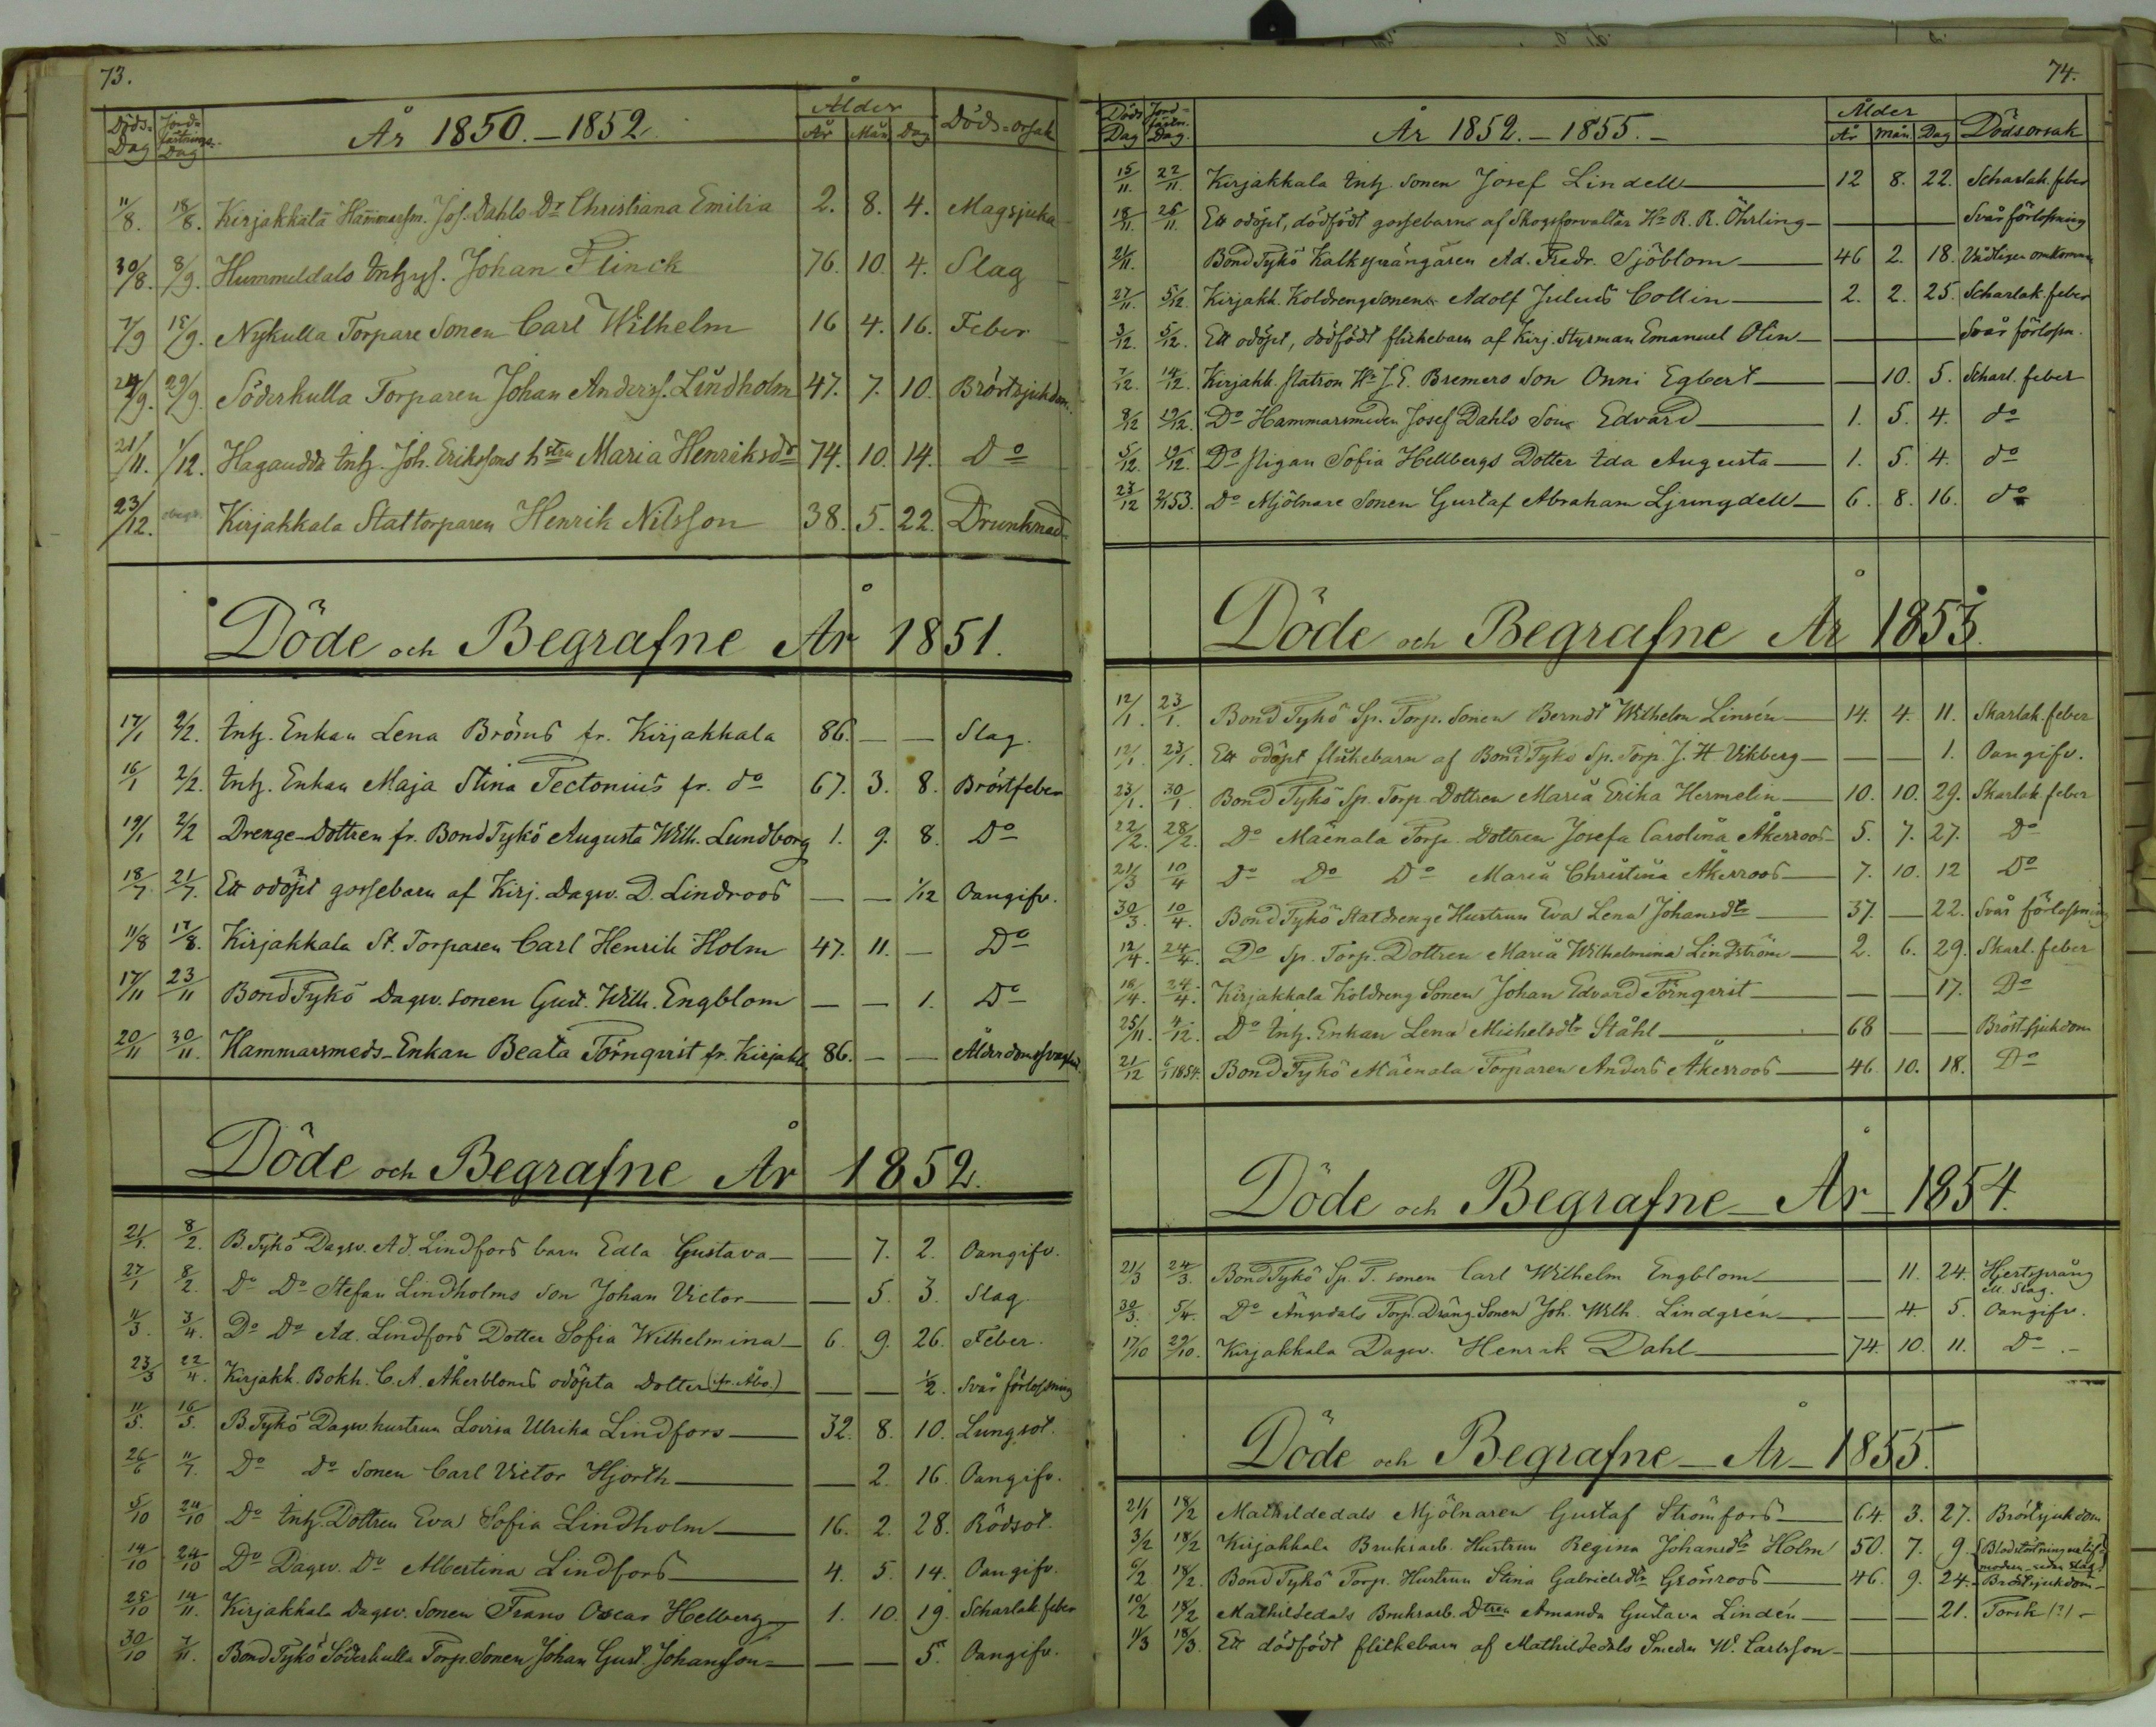 73.
Döds-Dag Jordfästnings-Dag År 1850.-1852. Ålder År Mån Dag Döds-orsak
11/8. 18/8. Kirjakkala Hammarsm. Jos. Dahls Dr Christiana Emilia 2. 8. 4. Magsjuka
30/8. 8/9. Hummeldals Inhys. Johan Flinck 76. 10. 4. Slag
7/9 15/9. Nykulla Torpare Sonen Carl Wilhelm 16 4. 16. Feber
24/9. 29/9. Söderkulla Torparen Johan Anderss. Lindholm 47. 7. 10. Bröstsjukdom.
21/11. 1/12. Hagaudda Inh. Joh. Erikssons hstru Maria Henriksdr 74. 10. 14. Do
23/12. obegr. Kirjakkala Stattorparen Henrik Nilsson 38. 5. 22. Drunknad
Döde och Begrafne År 1851.
17/1 2/2. Inh. Enkan Lena Bröms fr. Kirjakkala 86. — — Slag.
16/1 2/2. Inh. Enkan Maja Stina Tectonius fr. do 67. 3. 8. Bröstfeber
19/1 2/2 Drenge-Dottren fr. Bond Tykö Augusta Wilh. Lundborg 1. 9. 8. Do
18/7. 21/7. Ett odöpt gossebarn af Kirj. Dagsv. D. Lindroos — — 1/12 Oangifv.
11/8 17/8. Kirjakkala St. Torparen Carl Henrik Holm 47. 11. — Do
17/11 23/11 Bond Tykö Dagsv. sonen Gust. Wilh. Engblom — — 1. Do
20/11 30/11. Hammarsmeds-Enkan Beata Törnqvist fr. Kirjakk. 86. — — Ålderdomssvaghet
Döde och Begrafne År 1852.
21/1. 8/2. B. Tykö Dagsv. Ad. Lindfors barn Edla Gustava — 7. 2. Oangifv.
27/1 8/2. Do Do Stefan Lindholms Son Johan Victor — 5. 3. Slag.
11/3. 3/4. Do Do Ad. Lindfors Dotter Sofia Wilhelmina 6. 9. 26. Feber.
23/3 22/4. Kirjakk. Bokh. C. A. Åkerbloms odöpta Dotter (fr. Åbo.) — — 1/2. Svår förlossning
11/5. 16/5. B. Tykö Dagsv. hustrun Lovisa Ulrika Lindfors 32. 8. 10. Lungsot.
26/6 11/7. Do Do Sonen Carl Victor Hjorth — 2. 16. Oangifv.
5/10 24/10 Do Inh. Dottren Eva Sofia Lindholm 16. 2. 28. Rödsot.
14/10 24/10 Do Dagsv. Do Albertina Lindfors 4. 5. 14. Oangifv.
25/10 14/11. Kirjakkala Dagsv. Sonen Frans Oscar Helberg 1. 10. 19. Scharlak. feber
30/10 7/11. Bond Tykö Söderkulla Torp. Sonen Johan Gust. Johansson — — 5. Oangifv.
74.
Döds Dag Jordfästn. Dag. År 1852.-1855.- Ålder År Mån. Dag Dödsorsak
15/11. 22/11. Kirjakkala Inh. Sonen Josef Lindell 12 8. 22. Scharlak. feber
18/11. 26/11. Ett odöpt, dödfödt gossebarn af Skogsforvaltar Hr R. R. Öhrling — Svår förlossning
21/11. Bond Tykö Kalksprängaren Ad. Fredr. Sjöblom 46 2. 18. Vådligen omkommen
27/11. 5/12. Kirjakk. Koldreng Sonen Adolf Julius Collin 2. 2. 25. Scharlak. feber
3/12. 5/12. Ett odöpt, dödfödt flickebarn af Kirj. Styrman Emanuel Olin — Svår förlossn.
7/12. 14/12. Kirjakk. Patron Hr J. E. Bremers Son Onni Egbert — 10. 5. Scharl. feber
8/12 19/12. Do Hammarsmeden Josef Dahls Son Edvard 1. 5. 4. do
5/12. 19/12. Do Pigan Sofia Hellbergs Dotter Ida Augusta 1. 5. 4. do
23/12 2/1 53. Do Mjölnare Sonen Gustaf Abraham Ljungdell 6. 8. 16. do
Döde och Begrafne År 1853.
12/1. 23/1. Bond Tykö Sp. Torp. Sonen Berndt Wilhelm Linsén 14. 4. 11. Skarlak. feber
12/1. 23/1. Ett odöpt flickebarn af Bond Tykö Sp. Torp. J. H. Vikberg — — 1. Oangifv.
23/1. 30/1. Bond Tykö Sp. Torp. Dottren Maria Erika Hermelin 10. 10. 29. Skarlak. feber
22/2. 28/2. Do Mäenala Torp. Dottren Josefa Carolina Åkerroos 5. 7. 27. Do
21/3 10/4 Do Do Do Maria Christina Åkerroos 7. 10. 12 Do
30/3. 10/4. Bond Tykö Statdrenge Hustrun Eva Lena Johansdtr 37. — 22. Svår förlossning
12/4. 24/4. Do Sp. Torp. Dottren Maria Wilhelmina Lindström 2. 6. 29. Skarl. feber
18/4. 24/4. Kirjakkala Koldreng Sonen Johan Edvard Törnqvist — — 17. Do
25/11. 4/12. Do Inh. Enkan Lena Michelsdtr Ståhl 68 — — Bröst-sjukdom
21/12 6/1 1854. Bond Tykö Mäenala Torparen Anders Åkerroos 46. 10. 18. Do
Döde och Begrafne År 1854.
21/3 24/3. Bond Tykö Sp. T. sonen Carl Wilhelm Engblom — 11. 24. Hjertsprång ell. Slag.
30/3. 5/4. Do Ängsdals Torp. Dräng Sonen Joh. Wilh. Lindgrén — 4. 5. Oangifv.
17/10 29/10. Kirjakkala Dagsv. Henrik Dahl 74. 10. 11. Do.-
Döde och Begrafne År 1855.
21/1 18/2 Mathildedals Mjölnaren Gustaf Strömfors 64. 3. 27. Bröstsjukdom
3/2 18/2 Kirjakkala Bruksarb. Hustrun Regina Johansdtr Holm 50. 7. 9. Blodstörtning ur lifmodren
6/2 18/2. Bond Tykö Torp. Hustrun Stina Gabrielsdtr Grönroos 46. 9. 24. Bröstsjukdom-
10/2 18/2 Mathildedals Bruksarb. Dtren Amanda Gustava Lindén — — 21. Torsk (?) -
11/3 18/3. Ett dödfödt flickebarn af Mathildedals Smeden W. Carlsson